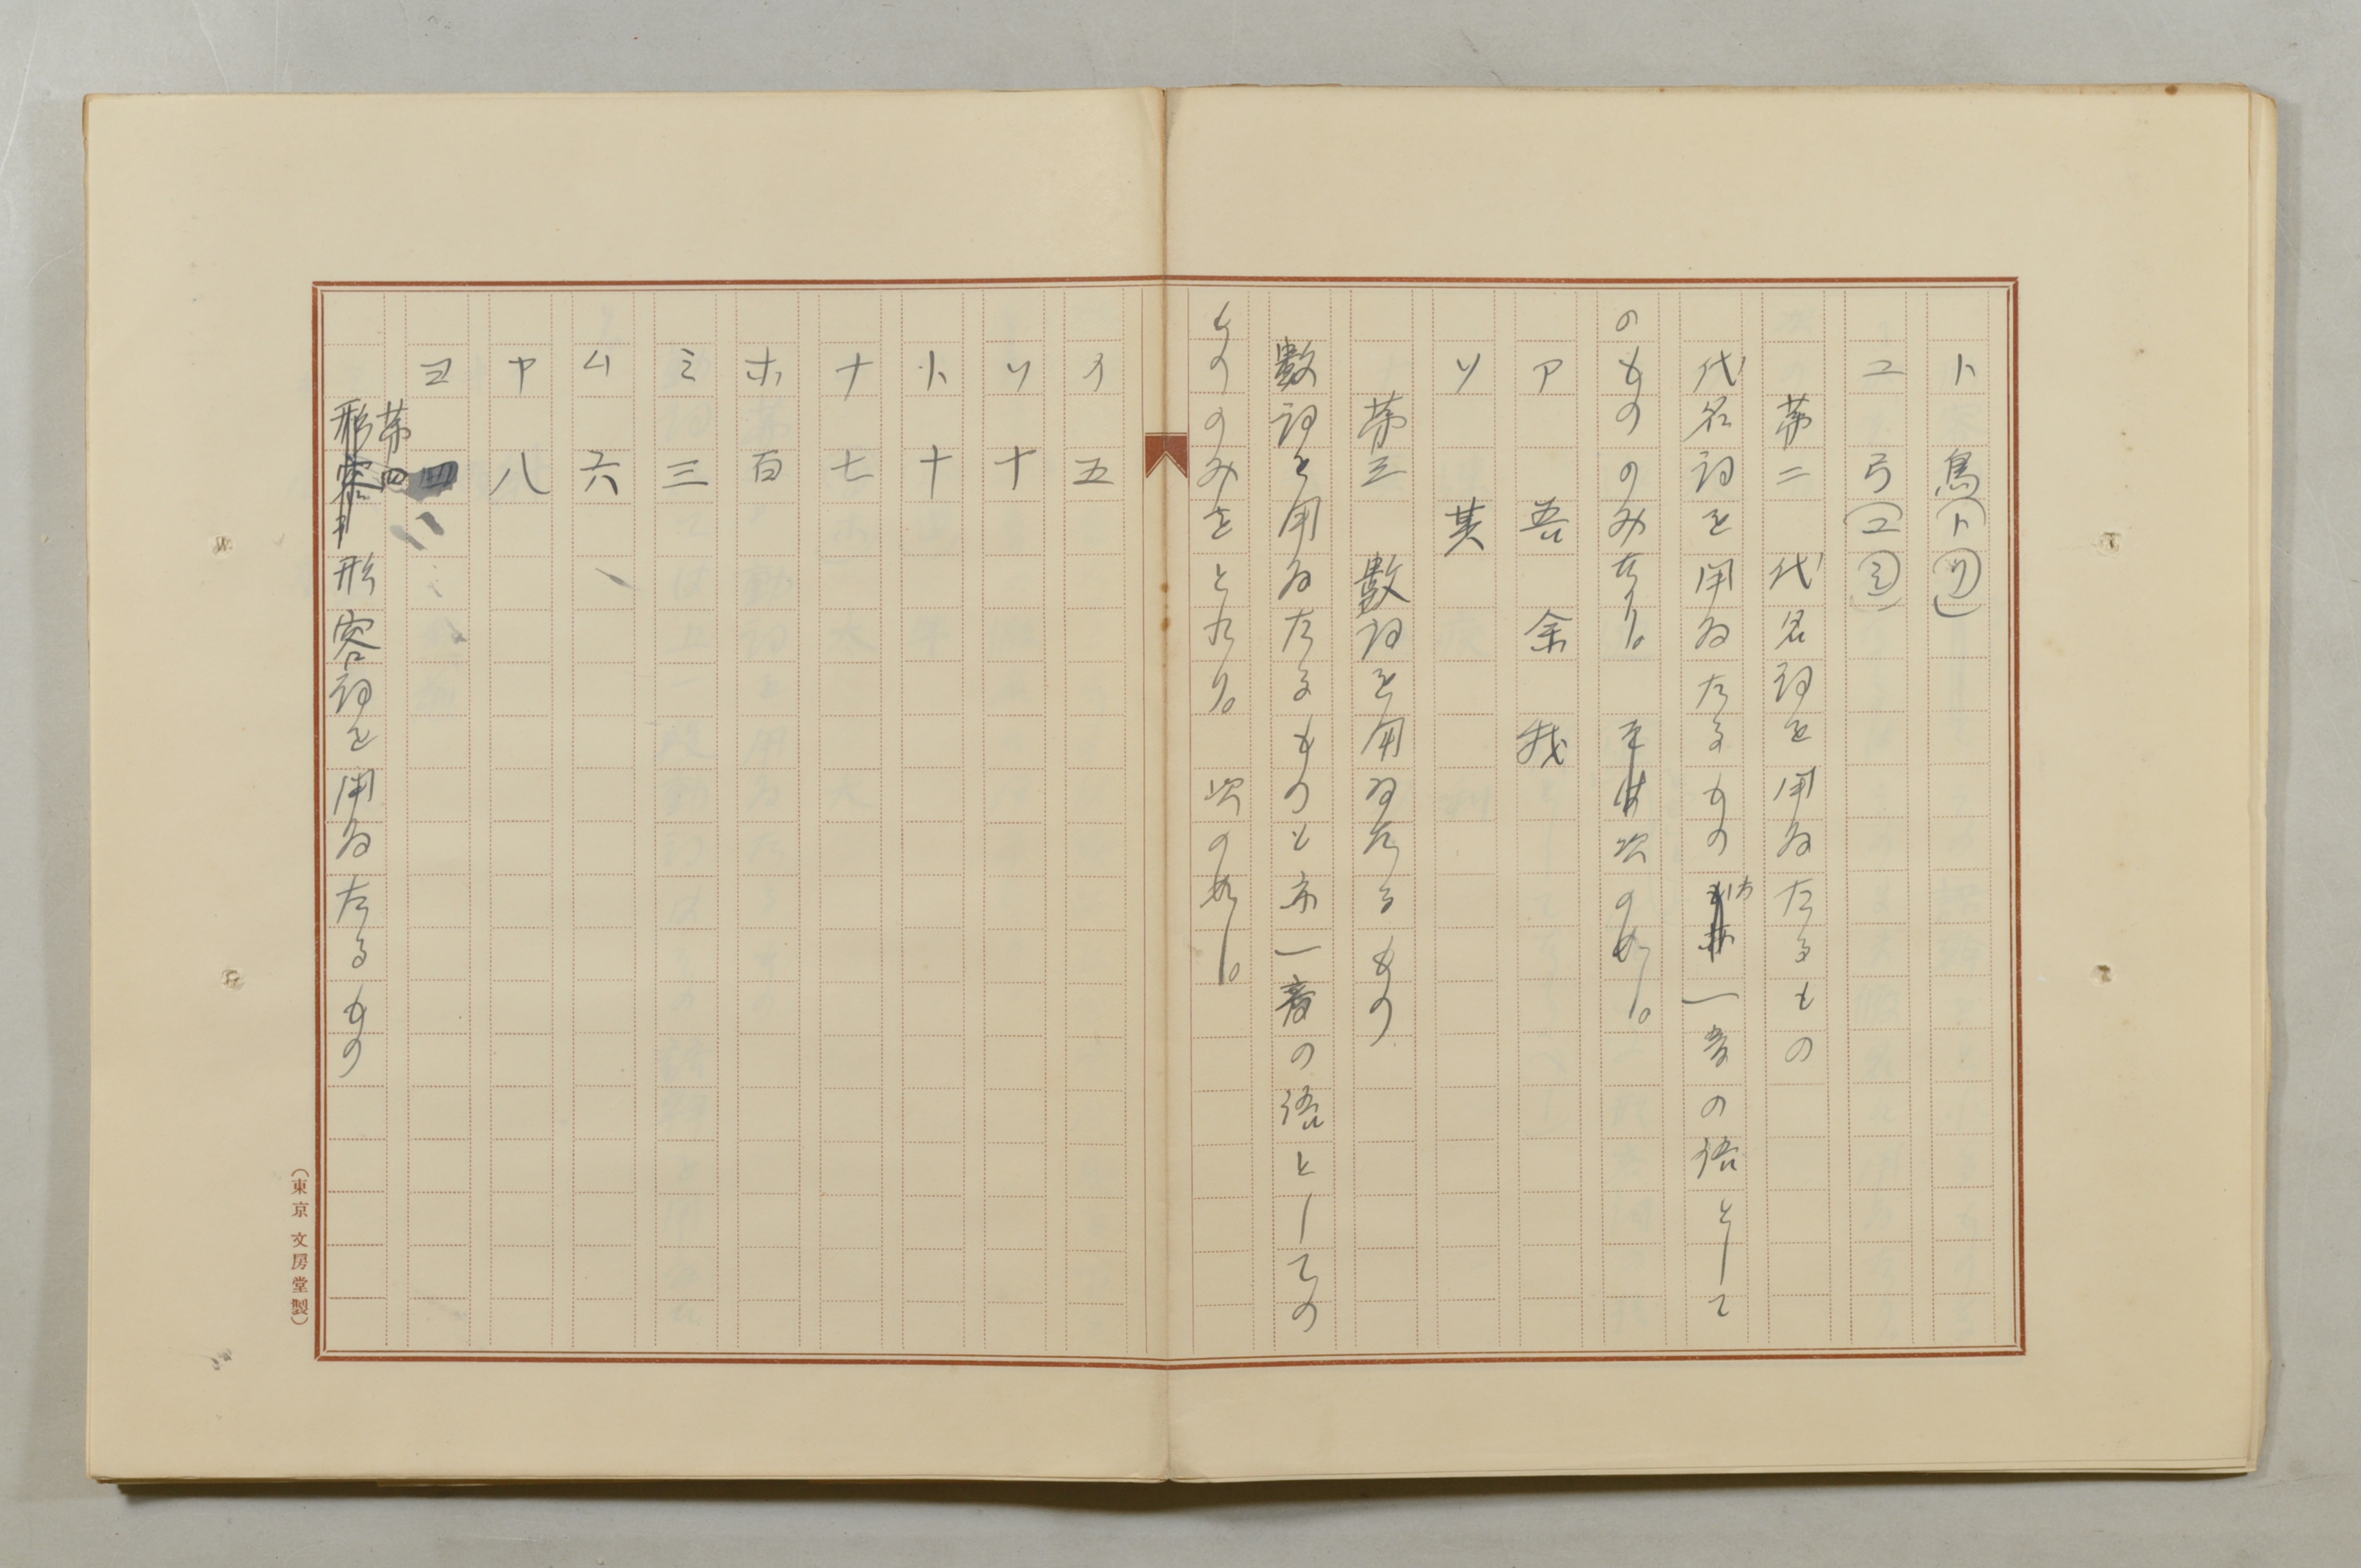 ト　鳥(ト(リ))
ユ　弓(ユ(ミ))
第二　代名詞を用ゐたるもの
代名詞を用ゐたるもの亦一音の語として
のもののみなり。次の如し。
ア　吾　余　我
ソ　其
第三　數詞を用ゐたるもの
數詞を用ゐたるものも亦一音の語としての
もののみをとれり。次の如し。
イ　五
ソ　十
ト　十
ナ　七
ホ　百
ミ　三
ム　六
ヤ　八
ヨ　四
第四
形容詞を用ゐたるもの
（東京 文房堂製）